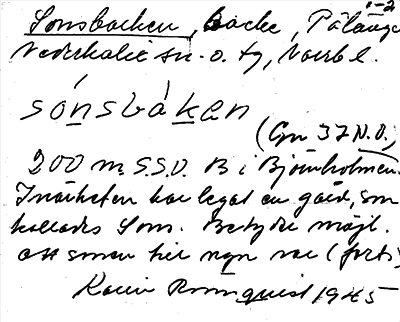 1-2
Sonsbacken, backe, Pålänge
Nederkalix sn. o. tg, Norrb l.
sónsbàken
(Gn 37 N.O.)
200 m S.S.O. B i Björnholmen.
I närheten har legat en gård, som
kallades Sons. Betyder möjl.
att sonen till ngn var (forts)
Karin Rönnquist 1945